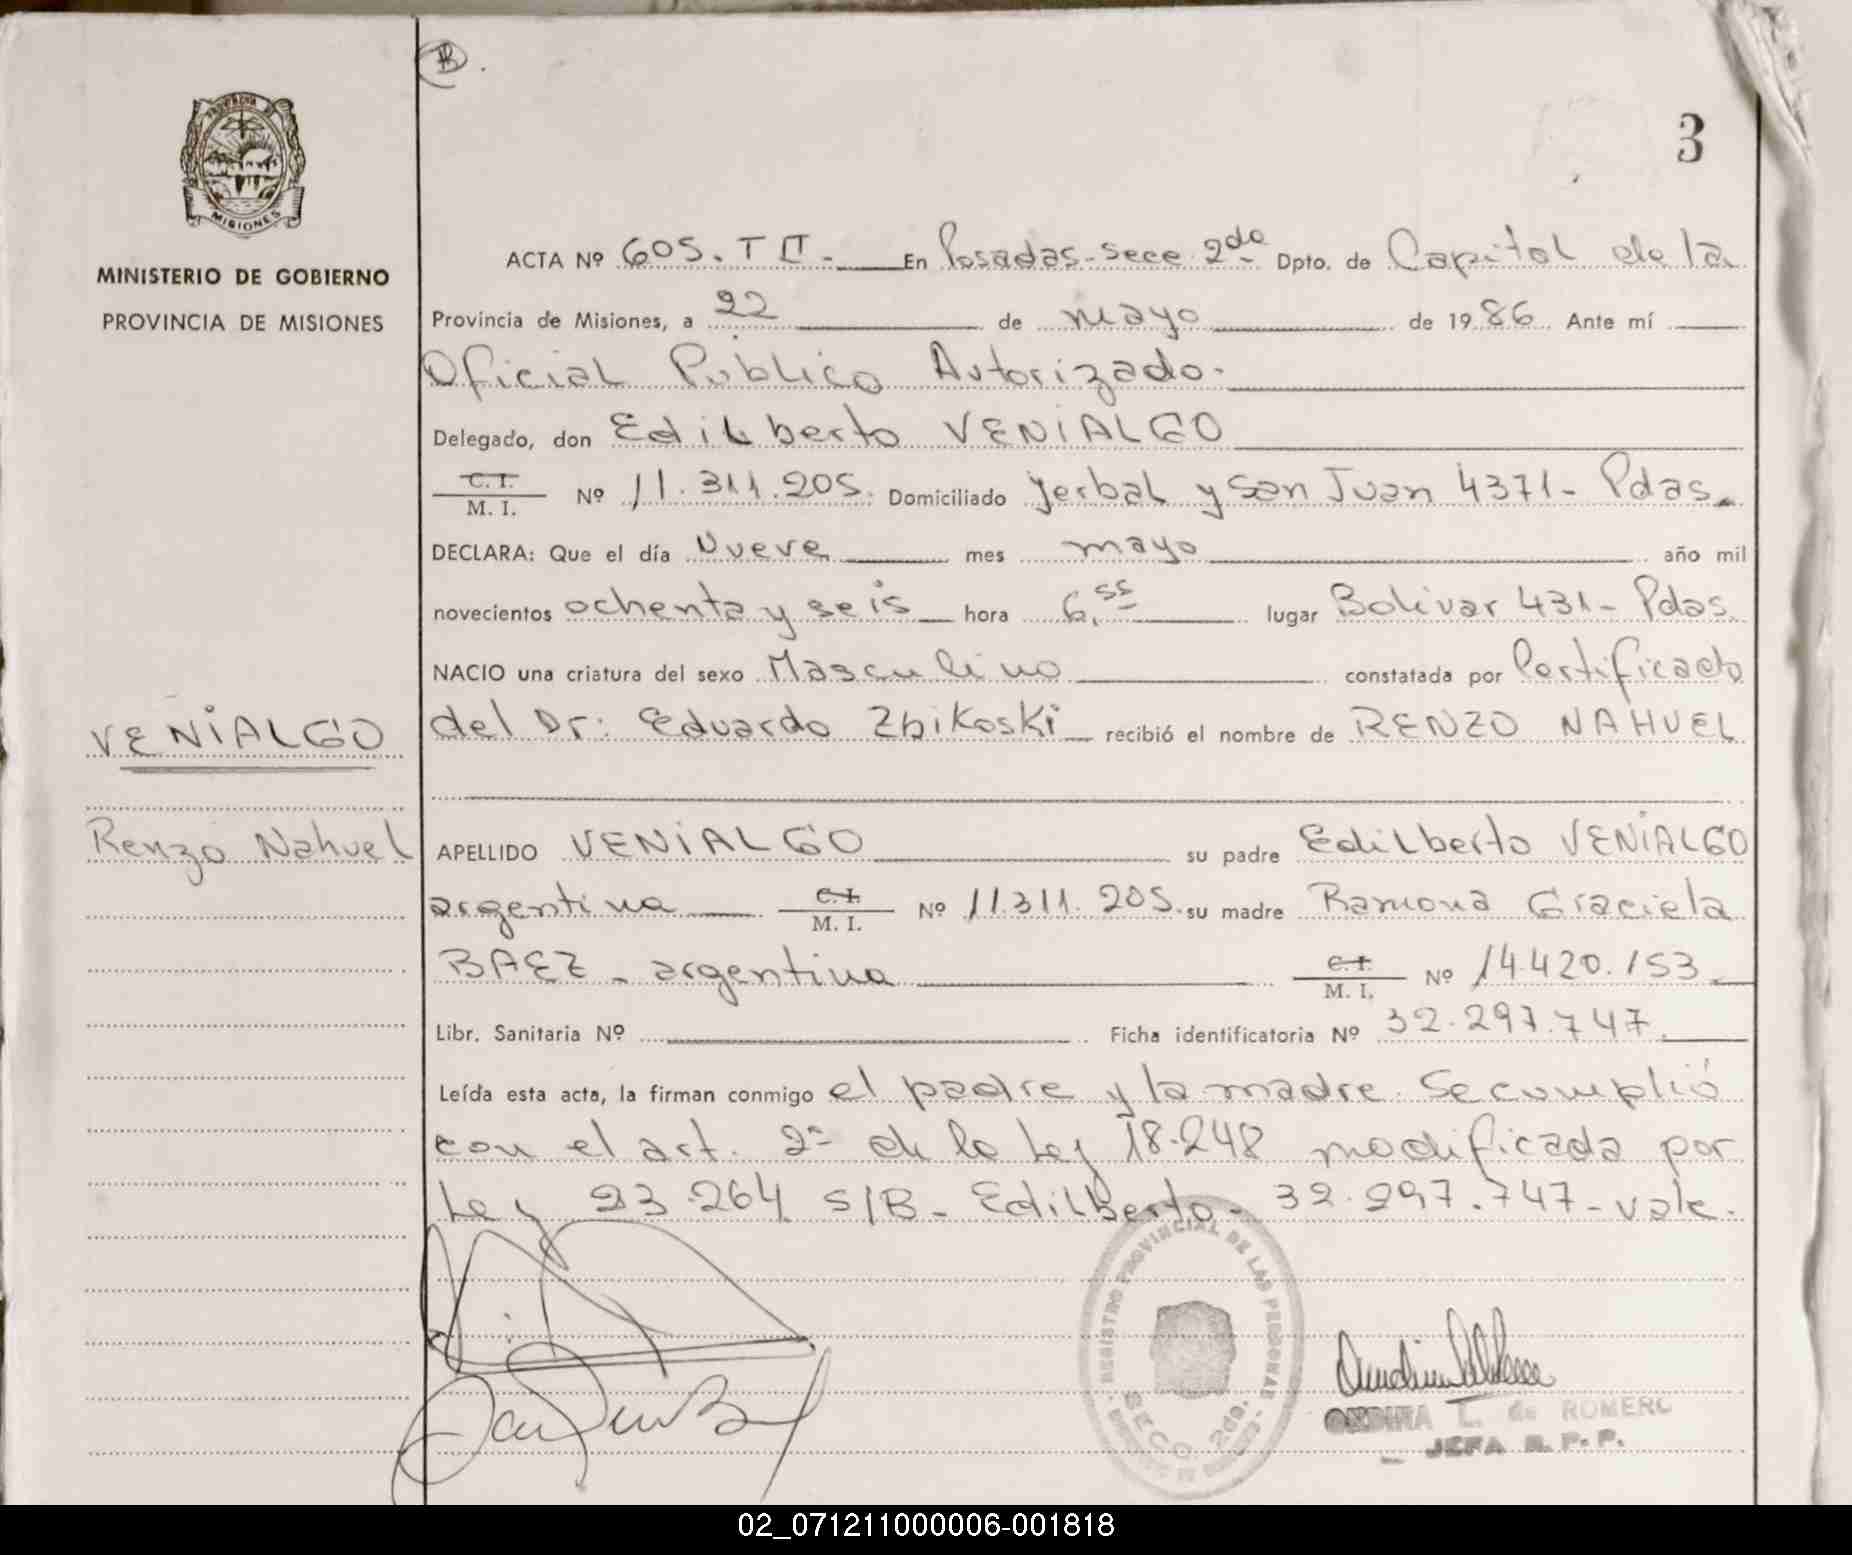 3
PROVINCIA DE
MISIONES
MINISTERIO DE GOBIERNO
PROVINCIA DE MISIONES
VENIALGO
Renzo Nahuel
ACTA Nº 605. T II. En Posadas-secc 2da Dpto. de Capital de la
Provincia de Misiones, a 22 de mayo de 1986 Ante mí
Oficial Público Autorizado.
Delegado, don Edilberto VENIALGO
C.I. / M. I. Nº 11.311.205. Domiciliado Yerbal y San Juan 4371- Pdas.
DECLARA: Que el día Nueve mes mayo año mil
novecientos ochenta y seis hora 6,55 lugar Bolivar 431- Pdas.
NACIO una criatura del sexo Masculino constatada por Certificado
del Dr: Eduardo Zbikoski recibió el nombre de RENZO NAHUEL
APELLIDO VENIALGO su padre Edilberto VENIALGO
argentina C.I. / M. I. Nº 11.311.205. su madre Ramona Graciela
BAEZ - argentina C.I. / M. I. Nº 14.420.153
Libr. Sanitaria Nº Ficha identificatoria Nº 32.297.747
Leída esta acta, la firman conmigo el padre y la madre. Se cumplió
con el art. 2º de la Ley 18.248 modificada por
Ley 23.264 S/B- Edilberto- 32.297.747- vale.
REGISTRO PROVINCIAL DE LAS PERSONAS
SECC. 2da.
L. de ROMERO
JEFA R. P. P.
02_071211000006-001818